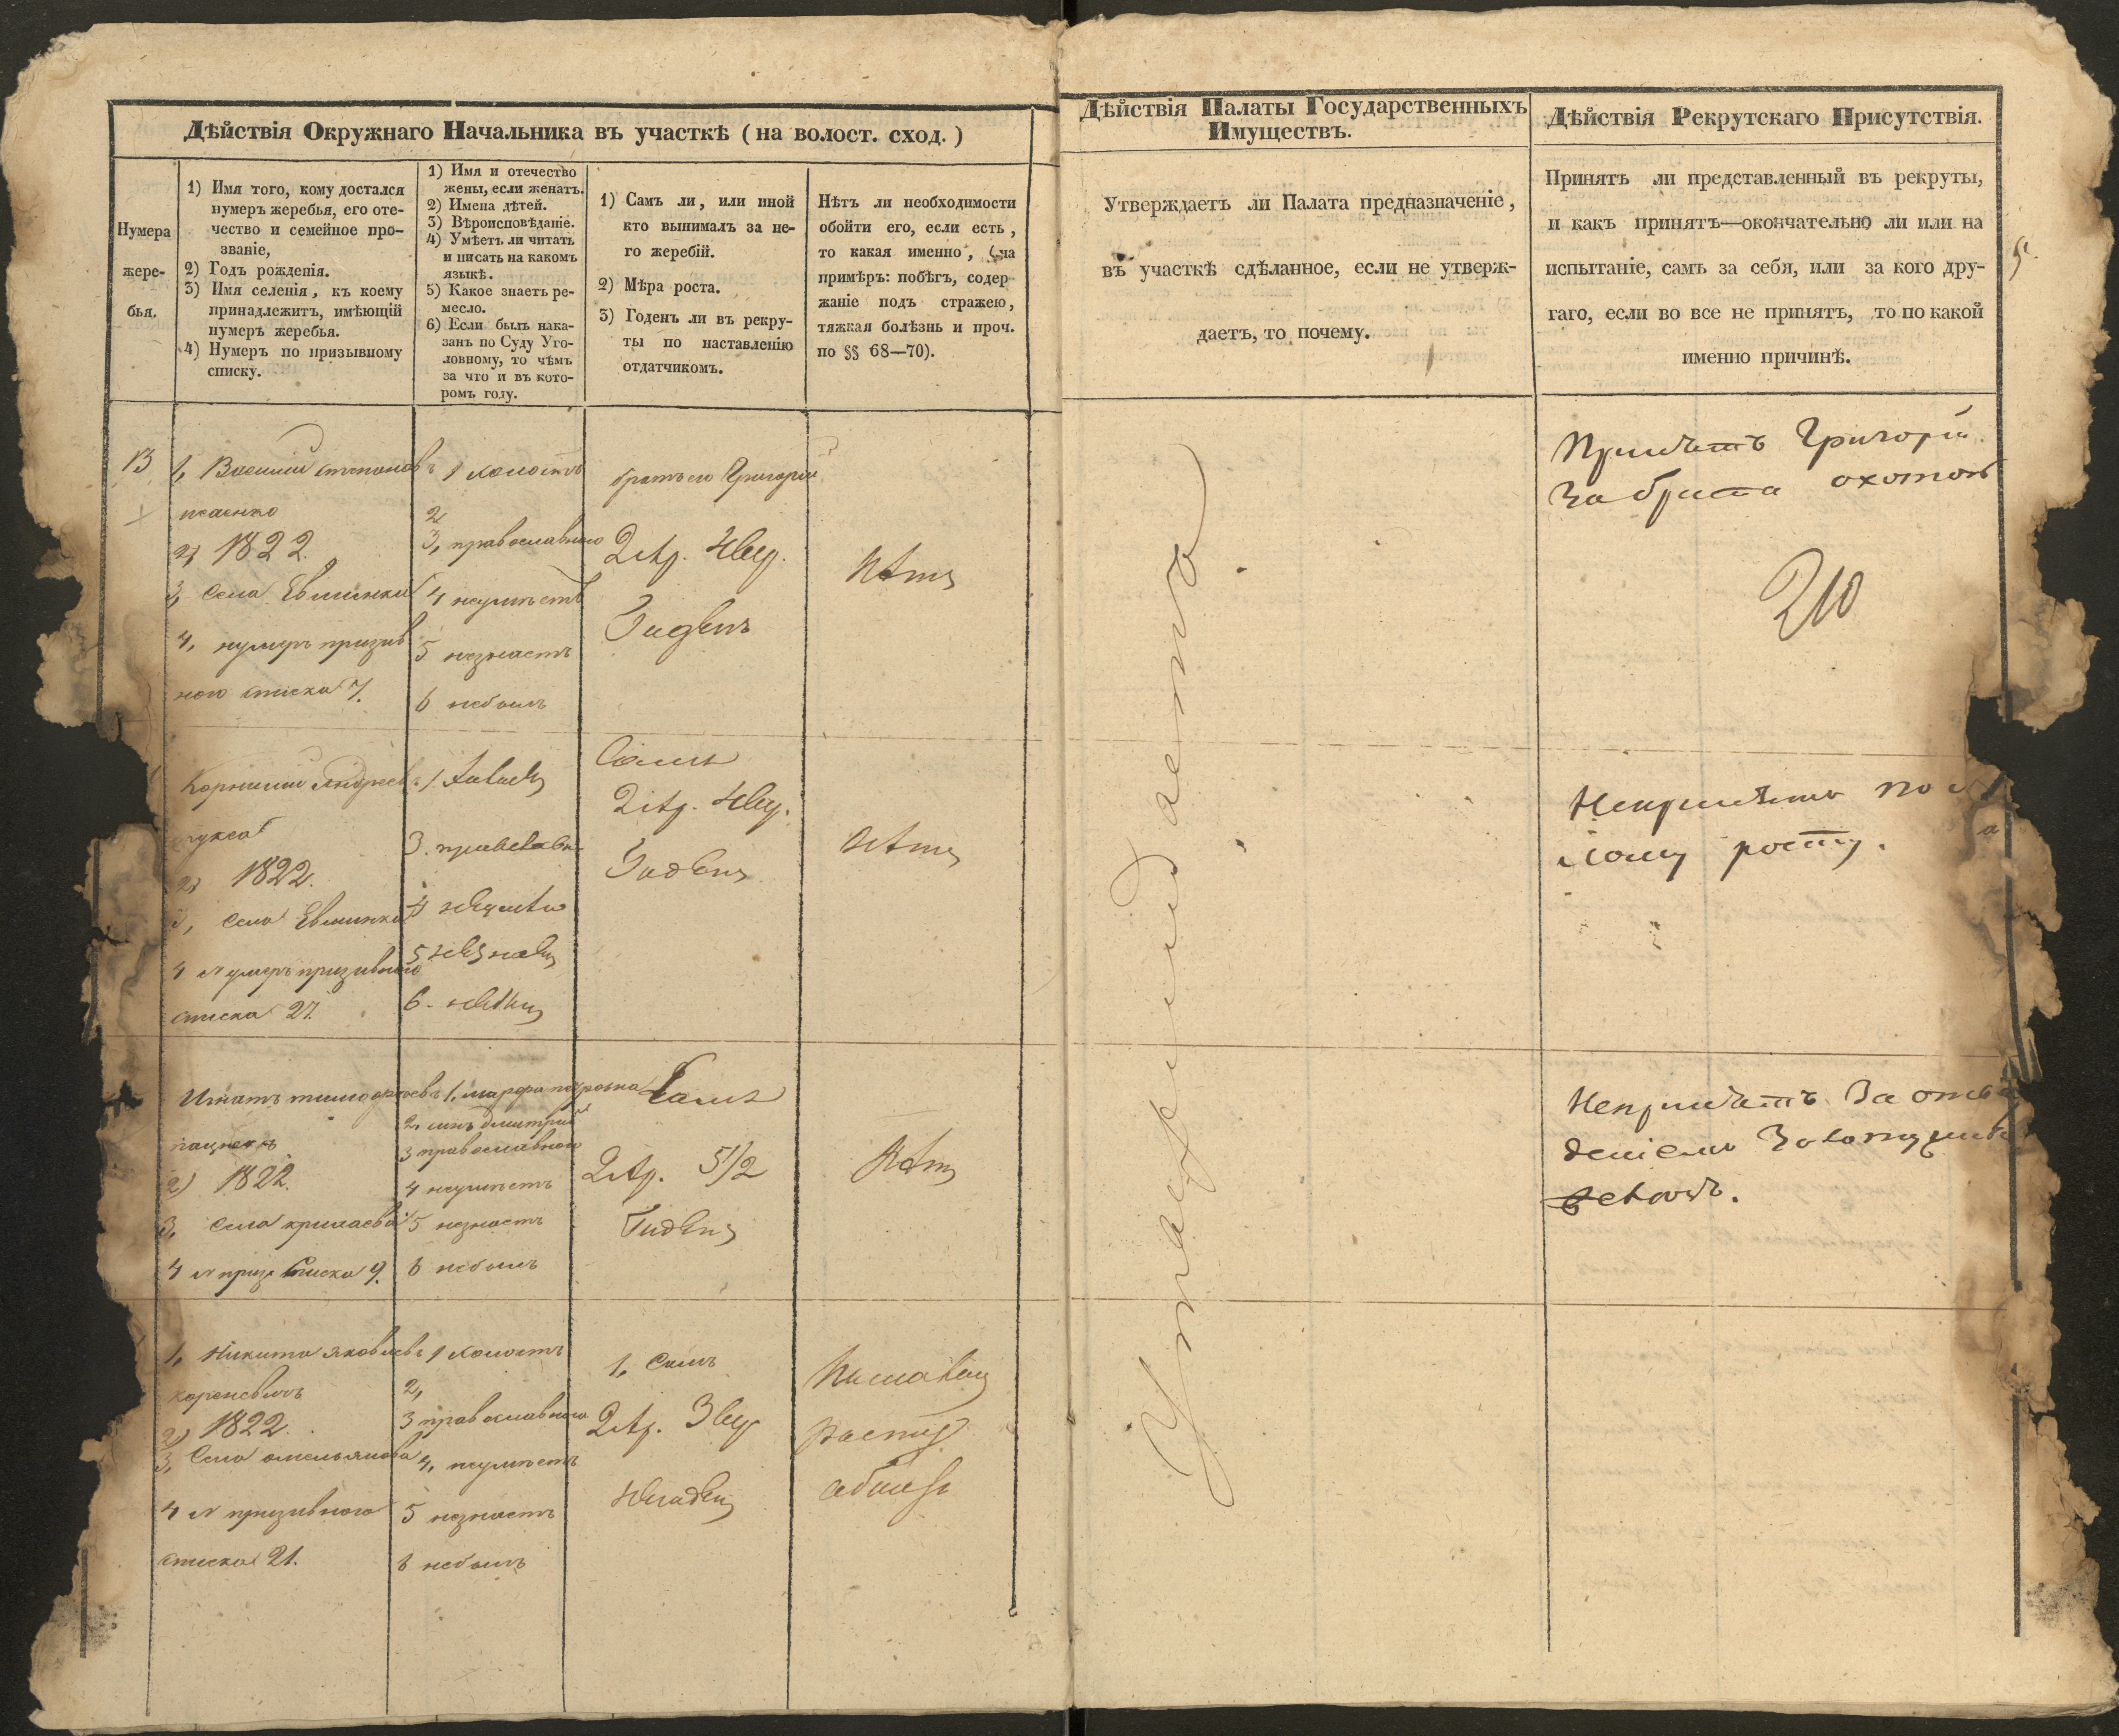 Дѣйствія Окружнаго Начальника въ участкѣ (на волост. сход.)
Нумера
жере-
бья.
1) Имя того, кому достался
нумеръ жеребья, его оте-
чество и семейное про-
званіе,
2) Годъ рожденія.
3) Имя селенія, къ коему
принадлежитъ, имѣющій
нумеръ жеребья.
4) Нумеръ по призывному
списку.
1) Имя и отечество
жены, если женатъ.
2) Имена дѣтей.
3) Вѣроисповѣданіе.
4) Умѣетъ ли читать
и писать на какомъ
языкѣ.
5) Какое знаетъ ре-
месло.
6) Если былъ нака-
занъ по Суду Уго-
ловному, то чѣмъ
за что и въ кото-
ромъ году.
1) Самъ ли, или иной
кто вынималъ за не-
го жеребій.
2) Мѣра роста.
3) Годенъ ли въ рекру-
ты по наставленію
отдатчикомъ.
Нѣтъ ли необходимости
обойти его, если есть,
то какая именно, (на
примѣръ: побѣгъ, содер
жаніе подъ стражею,
тяжкая болѣзнь и проч.
по §§ 68—70).
Дѣйствія Палаты Государственныхъ
Имуществъ.
Утверждаетъ ли Палата предназначеніе,
въ участкѣ сдѣланное, если не утверж-
даетъ, то почему.
Дѣйствія Рекрутскаго Присутствія.
Принятъ ли представленный въ рекруты,
и какъ принятъ—окончательно ли или на
испытаніе, самъ за себя, или за кого дру-
гаго, если во все не принятъ, то по какой
именно причинѣ.
13
1, Василій Степановъ
2, 1822.
3, Села Евминки
4, нумеръ призыв
ного списка 7.
1 холостъ
2
3, православного
4 неумѣетъ
5 незнаетъ
6 небылъ
братъ его Григорій
2 Ар. 4 вер.
Годенъ
Нѣтъ
Принятъ Григорій
за брата охотой
210
Корнилій Андреевъ
2, 1822.
3, Села Евминки
4 Нумеръ призывного
списка 27.
3. православн
5 незнаетъ
Самъ
2 Ар. 4 вер.
Годенъ
Нѣтъ
Непринятъ по
росту.
Игнатъ Тимофеевъ
2) 1822.
3, Села
4 N приз. Списка 9.
1, Марфа Петровна
2, сынъ Дмитрій
3 православного
4 неумѣетъ
5 незнаетъ
6 небылъ
Самъ
2 Ар. 5 1/2
Годенъ
Нѣтъ
Непринятъ За
1, Никита Яковлевъ
2) 1822.
3, Села Омельянова
4 N призывного
списка 21.
1 холостъ
2,
3 православного
4, неумѣетъ
5 незнаетъ
6 небылъ
1, Самъ
2 Ар. 3 вер
негоденъ
Утверждаетъ